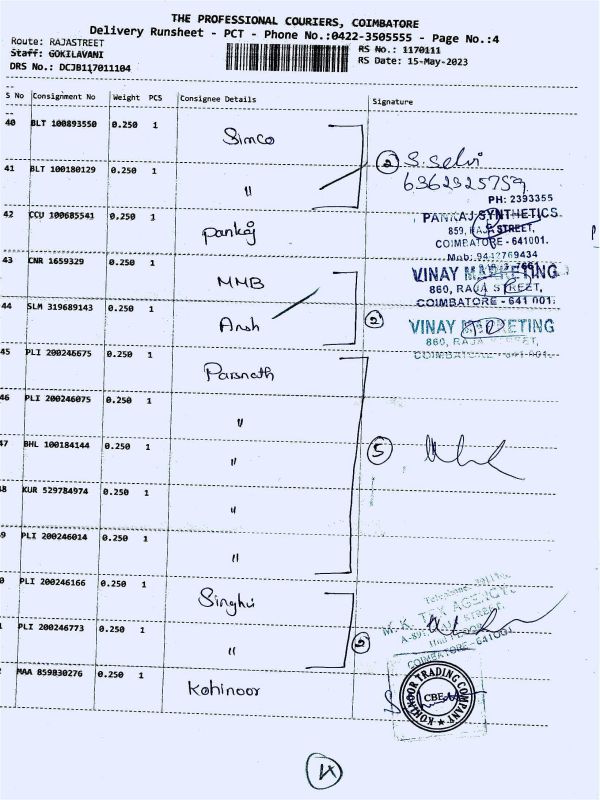 THE PROFESSIONAL COURIERS, COIMBATORE
Delivery Runsheet - PCT - Phone No.:0422-3505555 - Page No.:4
Route: RAJASTREET
Staff: GOKILAVANI
DRS No.: DCJB117011104
RS No.: 1170111
RS Date: 15-May-2023
S No Consignment No Weight PCS Consignee Details Signature
40 BLT 100893550 0.250 1 Simco
41 BLT 100180129 0.250 1 "
② S. Selvi
42 CCU 100685541 0.250 1 Pankaj
PH: 2393355
PANKAJ SYNTHETICS
859, RAJA STREET,
COIMBATORE - 641001.
43 CNR 1659329 0.250 1 MMB
VINAY MARKETING
860, RAJA STREET,
COIMBATORE - 641 001.
44 SLM 319689143 0.250 1 Arsh
②
VINAY MARKETING
860, RAJA STREET,
COIMBATORE - 641 001.
45 PLI 200246675 0.250 1 Parsnath
46 PLI 200246075 0.250 1 "
47 BHL 100184144 0.250 1 "
⑤
8 KUR 529784974 0.250 1 "
9 PLI 200246014 0.250 1 "
0 PLI 200246166 0.250 1 Singhvi
M. K. TEX AGENCY.
COIMBATORE - 641001
PLI 200246773 0.250 1 "
2 MAA 859830276 0.250 1 Kohinoor
KOHINOOR TRADING COMPANY
CBE